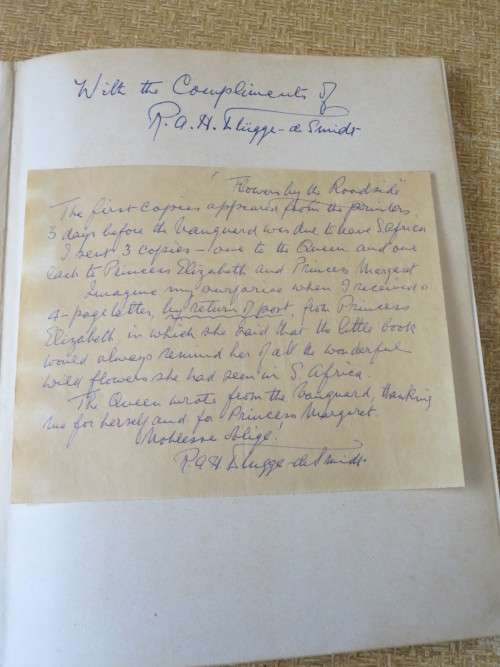 With the Compliments of
R.A.H. Flügge-de Smidt.
"Flowers by the Roadside"
The first copies appeared from the printers
3 days before the Vanguard was due to leave S Africa
I sent 3 copies – one to the Queen and one
each to Princess Elizabeth and Princess Margaret
Imagine my surprise when I received a
4-page letter, by return of post, from Princess
Elizabeth, in which she said that the little book
would always remind her of all the wonderful
wild flowers she had seen in S. Africa.
The Queen wrote from the Vanguard, thanking
me for herself and for Princess Margaret.
Noblesse oblige!
R.A.H. Flügge-de Smidt.